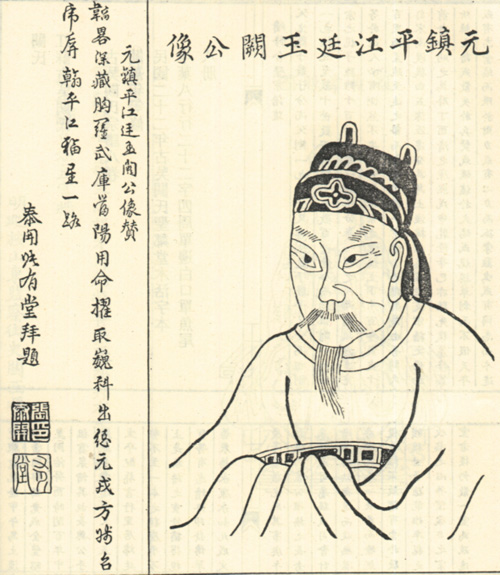 元鎮平江廷玉闕公像
元鎮平江廷玉闕公像贊
韜畧深藏胸羅武庫當陽用命擢取巍科出總元戎方台
席屏翰平江福星一路
泰開有堂拜題